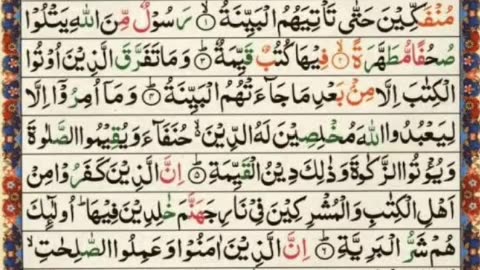 مُنْفَكِّيْنَ حَتّٰى تَاْتِيَهُمُ الْبَيِّنَةُ ۙ‏﴿۱﴾ رَسُوْلٌ مِّنَ اللّٰهِ يَتْلُوْا
صُحُفًا مُّطَهَّرَةً ۙ‏﴿۲﴾ فِيْهَا كُتُبٌ قَيِّمَةٌ ؕ‏﴿۳﴾ وَمَا تَفَرَّقَ الَّذِيْنَ اُوْتُوا
الْكِتٰبَ اِلَّا مِنْۢ بَعْدِ مَا جَآءَتْهُمُ الْبَيِّنَةُ ؕ‏﴿۴﴾ وَمَاۤ اُمِرُوْۤا اِلَّا
لِيَعْبُدُوا اللّٰهَ مُخْلِصِيْنَ لَهُ الدِّيْنَ ۙ حُنَفَآءَ وَيُقِيْمُوا الصَّلٰوةَ
وَيُؤْتُوا الزَّكٰوةَ وَذٰلِكَ دِيْنُ الْقَيِّمَةِ ؕ‏﴿۵﴾ اِنَّ الَّذِيْنَ كَفَرُوْا مِنْ
اَهْلِ الْكِتٰبِ وَالْمُشْرِكِيْنَ فِىْ نَارِ جَهَنَّمَ خٰلِدِيْنَ فِيْهَا ؕ اُولٰٓٮِٕكَ
هُمْ شَرُّ الْبَرِيَّةِ ؕ‏﴿۶﴾ اِنَّ الَّذِيْنَ اٰمَنُوْا وَعَمِلُوا الصّٰلِحٰتِ ۙ